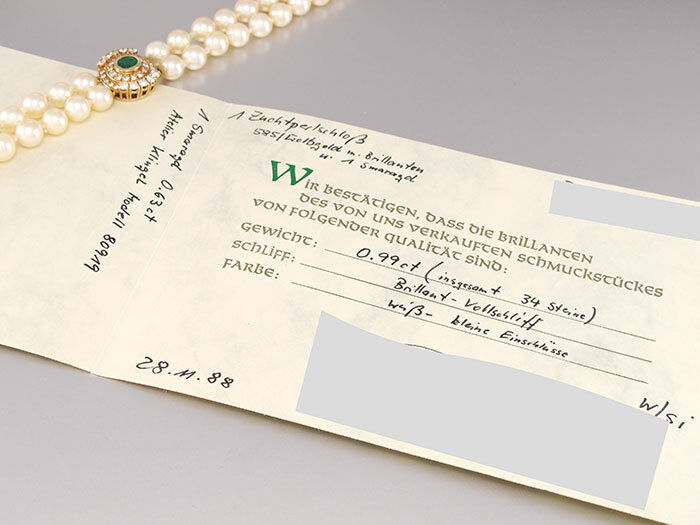 1 Smaragd 0.63ct
Atelier Klingel Modell 80919
1 Zuchtperlschloß
585/Gelbgold m. Brillanten
u. 1 Smaragd
WIR BESTÄTIGEN, DASS DIE BRILLANTEN
DES VON UNS VERKAUFTEN SCHMUCKSTÜCKES
VON FOLGENDER QUALITÄT SIND:
GEWICHT: 0.99ct (insgesamt 34 Steine)
SCHLIFF: Brillant-Vollschliff
FARBE: weiß- kleine Einschlüsse
W/si
28.11.88